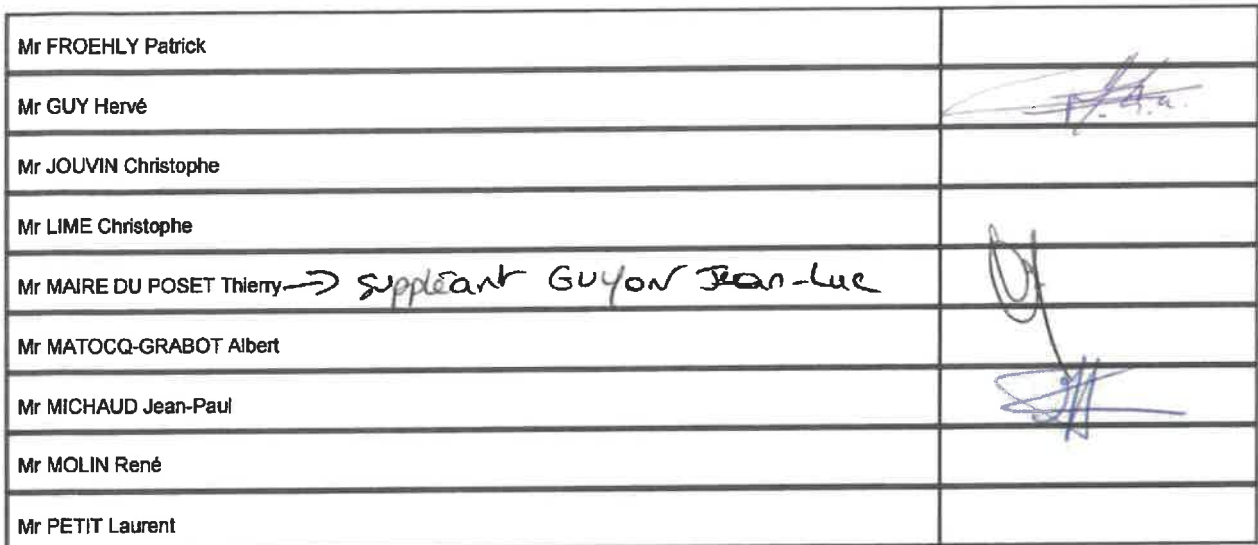 Mr FROEHLY Patrick
Mr GUY Hervé
Mr JOUVIN Christophe
Mr LIME Christophe
Mr MAIRE DU POSET Thierry → suppléant GUYON Jean-Luc
Mr MATOCQ-GRABOT Albert
Mr MICHAUD Jean-Paul
Mr MOLIN René
Mr PETIT Laurent